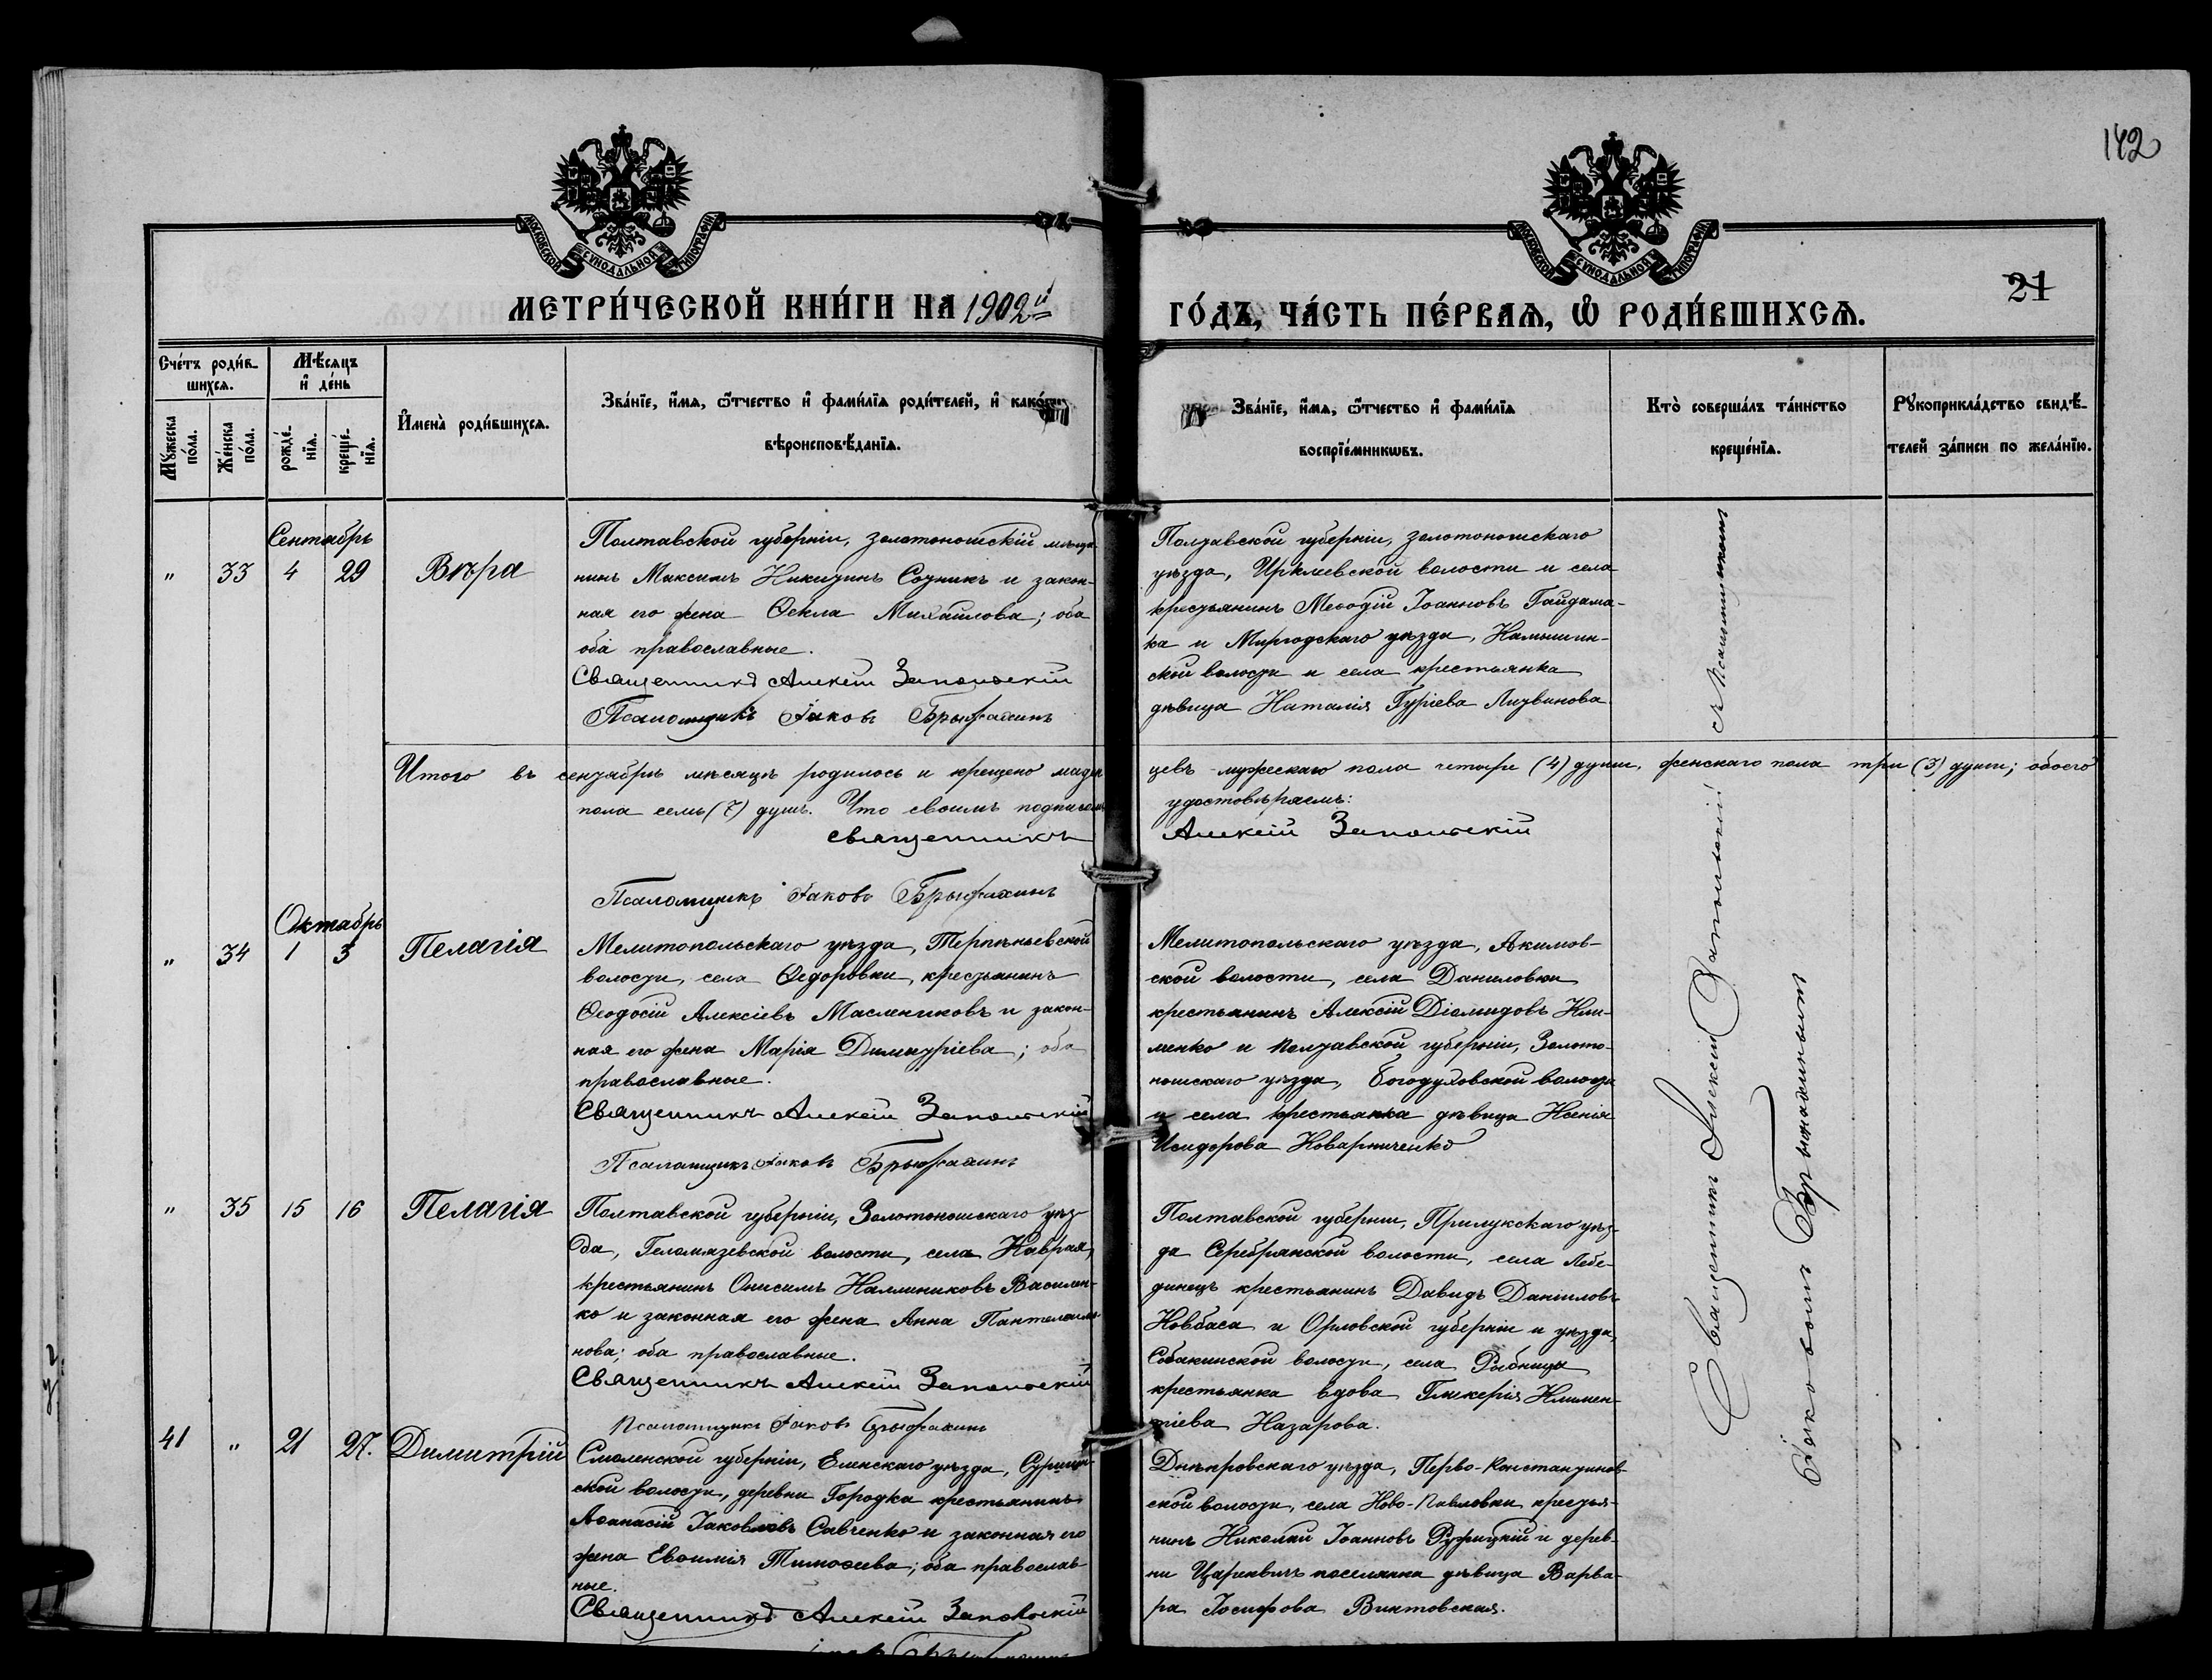 142
МОСКОВСКОЙ СѴНОДАЛЬНОЙ ТИПОГРАФІИ
МОСКОВСКОЙ СѴНОДАЛЬНОЙ ТИПОГРАФІИ
21
МЕТРИ́ЧЕСКОЙ КНИ́ГИ НА 1902й
ГО́ДЪ, ЧА́СТЬ ПЕ́РВАѦ, Ѡ҆ РОДИ́ВШИХСѦ.
Сче́тъ роди́в-
шихсѧ.
Мꙋжеска
по́ла.
Же́нска
по́ла.
Мѣ́сѧцъ
и҆ де́нь
рожде́-
нїѧ.
креще́-
нїѧ.
И҆мена̀ роди́вшихсѧ.
Зва́нїе, и҆́мѧ, ѻ҆́тчество и҆ фами́лїѧ роди́телей, и҆ како́гѡ
вѣроисповѣ́данїѧ.
Зва́нїе, и҆́мѧ, ѻ҆́тчество и҆ фами́лїѧ
воспрїе́мникѡвъ.
Кто̀ соверша́лъ та́инство
креще́нїѧ.
Рꙋкоприкла́дство свидѣ́-
телей за́писи по жела́нїю.
Сентябрь
" 33 4 29 Вѣра
Полтавской губерніи, золотоношскій мѣща-
нинъ Максимъ Никитинъ Сотникъ и закон-
ная его жена Ѳекла Михайлова; оба
оба православные.
Священникъ Алексій Запольскій
Псаломщикъ Іаковъ Брыжахинъ
Полтавской губерніи, золотоношскаго
уѣзда, Ирклеевской волости и села
крестьянинъ Меѳодій Іоанновъ Гайдама-
ка и Миргодскаго уѣзда, Камышин-
ской волости и села крестьянка
дѣвица Наталія Гуріева Литвинова
Итого въ сентябрѣ мѣсяцѣ родилось и крещено младен
цевъ мужескаго пола четыре (4) души, женскаго пола три (3) души; обоего
пола семь (7) душъ. Что своимъ подписомъ
удостовѣряемъ:
священникъ
Алексій Запольскій
Псаломщикъ Іаковъ Брыжахинъ
Октябрь
" 34 1 3 Пелагія
Мелитопольскаго уѣзда, Терпѣньевской
волости, села Ѳедоровки, крестьянинъ
Ѳеодосій Алексіевъ Маслениковъ и закон-
ная его жена Марія Димитріева; оба
православные.
Священникъ Алексій Запольскій
Псаломщикъ Іаковъ Брыжахинъ
Мелитопольскаго уѣзда, Акимов-
ской волости, села Даниловки
крестьянинъ Алексій Діомидовъ Кли-
менко и Полтавской губерніи, Золото-
ношскаго уѣзда, Богодуховской волости
и села крестьянка дѣвица Ксенія
Исидорова Коварниченко
" 35 15 16 Пелагія
Полтавской губерніи, Золотоношскаго уѣз-
да, Гелмязевской волости, села Каврая,
крестьянинъ Онисимъ Каллиниковъ Василен-
ко и законная его жена Анна Пантелеимо-
нова; оба православные.
Священникъ Алексій Запольскій
Псаломщикъ Іаковъ Брыжахинъ
Полтавской губерніи, Прилукскаго уѣз-
да Серебрянской волости, села Лебе-
динецъ крестьянинъ Давидъ Даніиловъ
Ковбаса и Орловской губерніи и уѣзда,
Собакинской волости, села Рыбница
крестьянка вдова Гликерія Климен-
тіева Назарова.
41 " 21 27. Димитрій
Смоленской губерніи, Еленскаго уѣзда,
ской волости, деревни Городка крестьянинъ
Аѳанасій Іаковлевъ Савченко и законная его
жена Евѳимія Тимоѳеева; оба православ-
ные.
Священникъ Алексій Запольскій
Днѣпровскаго уѣзда, Перво-Константинов-
ской волости, села Ново-Павловки крестья-
нинъ Николай Іоанновъ Ружицкій и дерев-
ни Царквичъ поселянка дѣвица Варва-
ра Іосифова Виктовская.
Священникъ Алексій Запольскій съ Псаломщикомъ
Іаковомъ Брыжахинымъ